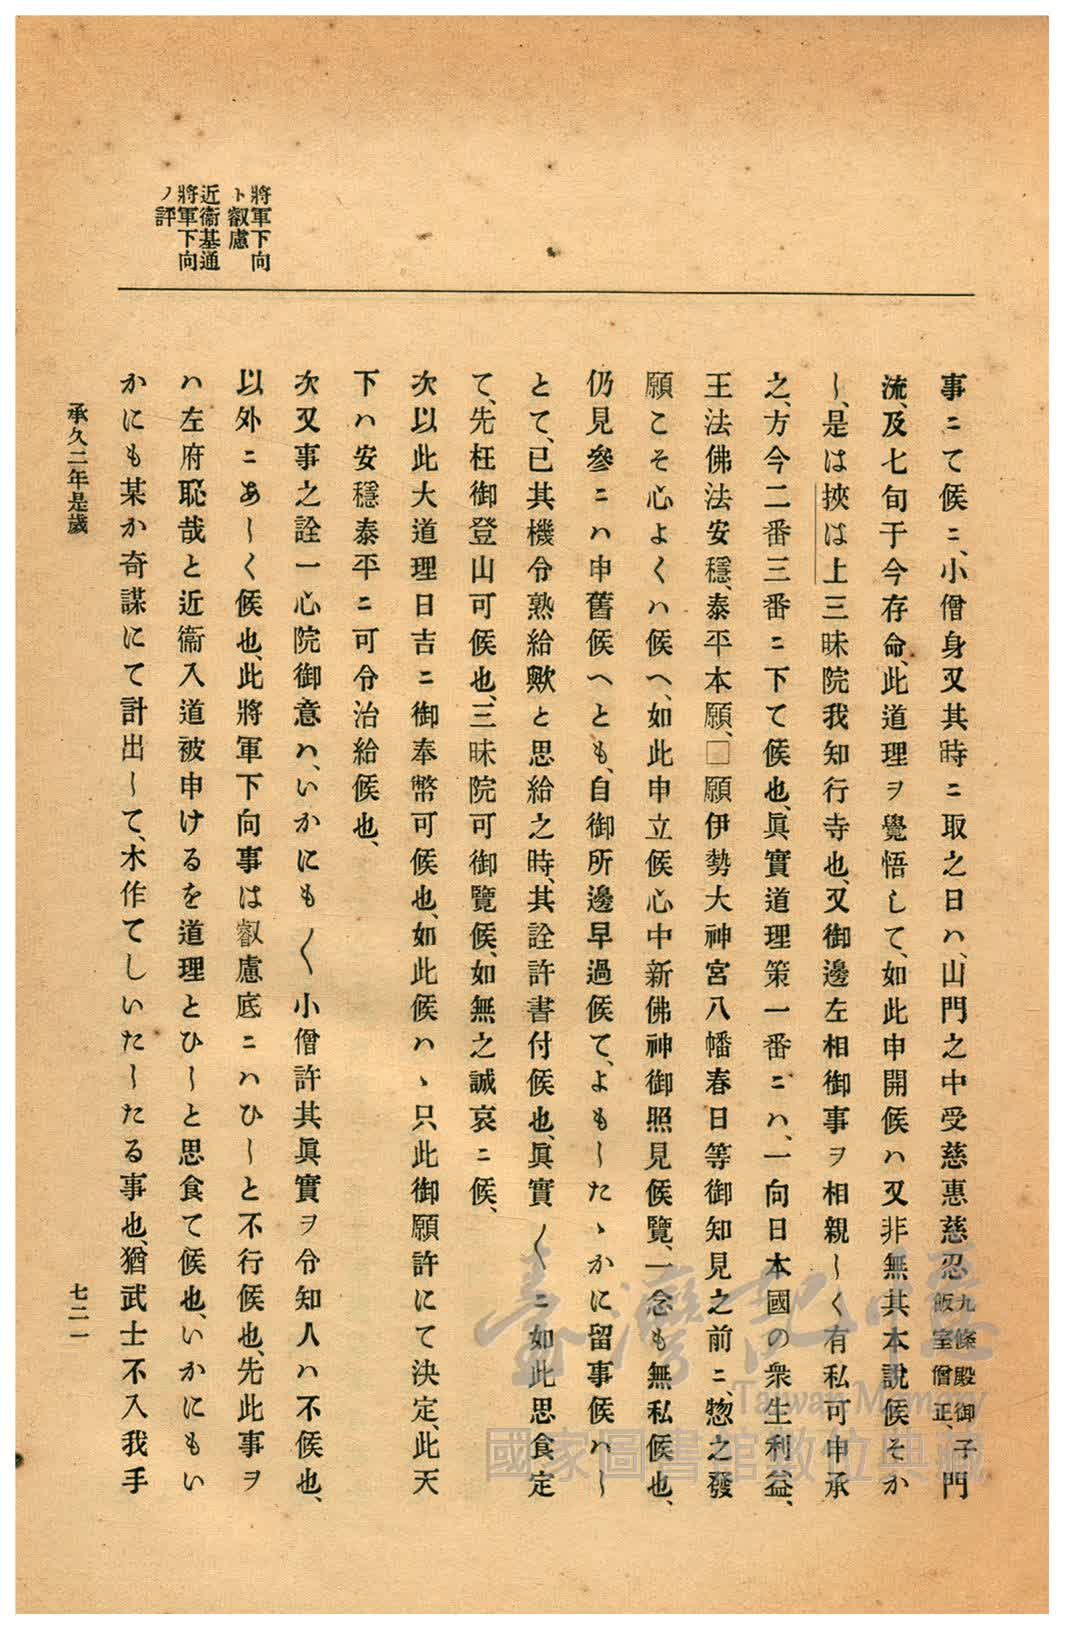 將軍下向
ト叡慮
近衞基通
將軍下向
ノ評
事ニて候ニ、小僧身又其時ニ取之日ハ、山門之中受慈惠慈忍九條殿御子飯室僧正、門
流、及七旬于今存命、此道理ヲ覺悟して、如此申開候ハ又非無其本說候そか
し、是は挾は上三昧院我知行寺也、又御邊左相御事ヲ相親しく有私可申承
之、方今二番三番ニ下て候也、眞實道理策一番ニハ、一向日本國の衆生利益、
王法佛法安穩、泰平本願、□願伊勢大神宮八幡春日等御知見之前ニ、惣之發
願こそ心よくハ候へ、如此申立候心中新佛神御照見候覽、一念も無私候也、
仍見參ニハ申舊候へとも、自御所邊早過候て、よもしたゝかに留事候ハし
とて、已其機令熟給歟と思給之時、其詮許書付候也、眞實〱ニ如此思食定
て、先枉御登山可候也、三昧院可御覽候、如無之誠哀ニ候、
次以此大道理日吉ニ御奉幣可候也、如此候ハヽ只此御願許にて決定、此天
下ハ安穩泰平ニ可令治給候也、
次又事之詮一心院御意ハ、いかにも〱小僧許其眞實ヲ令知人ハ不候也、
以外ニあしく候也、此將軍下向事は叡慮底ニハひしと不行候也、先此事ヲ
ハ左府恥哉と近衞入道被申けるを道理とひしと思食て候也、いかにもい
かにも某か奇謀にて計出して、木作てしいたしたる事也、猶武士不入我手
承久二年是歲
七二一
臺灣記憶
Taiwan Memory
國家圖書館數位典藏